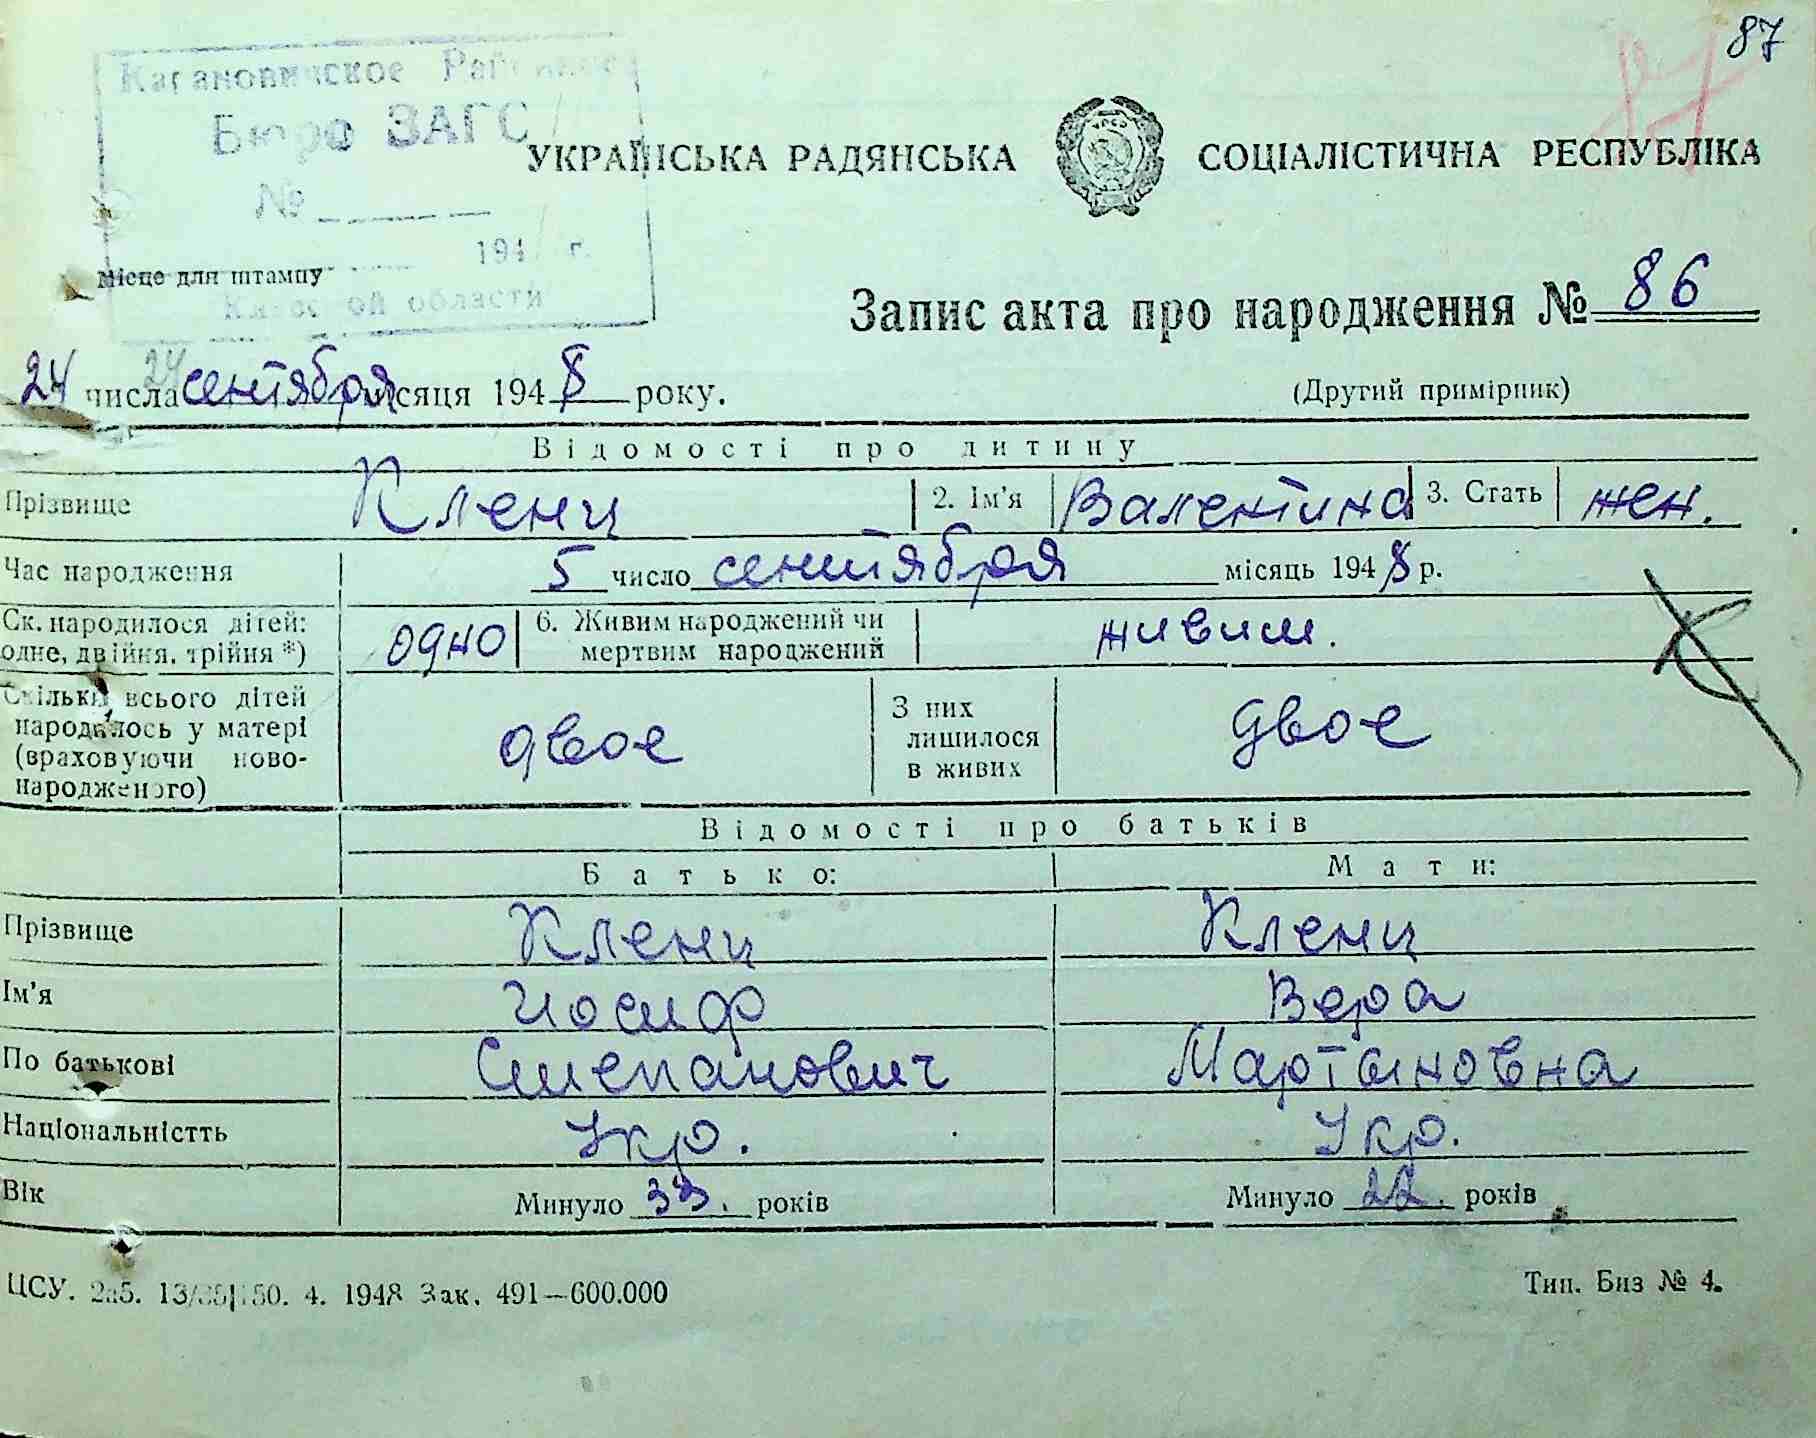 87
Кагановичское Рай
Бюро ЗАГС
№
194 г.
Місце для штампу
Киевской области
УКРАЇНСЬКА РАДЯНСЬКА СОЦІАЛІСТИЧНА РЕСПУБЛІКА
Запис акта про народження № 86
24 числа сентября місяця 1948 року.
(Другий примірник)
Відомості про дитину
Прізвище Кленц 2. Ім'я Валентина 3. Стать жен.
Час народження 5 число сентября місяць 1948 р.
Ск. народилося дітей: одно 6. Живим народжений чи живим.
одне, двійня, трійня *) мертвим народжений
Скільки всього дітей
народилось у матері
(враховуючи ново-
народженого)
двое
З них
лишилося
в живих
двое
Відомості про батьків
Батько: Мати:
Прізвище Кленц Кленц
Ім'я Иосиф Вера
По батькові Степанович Мартыновна
Національністть Укр. Укр.
Вік Минуло 33. років Минуло 22. років
ЦСУ. 4. 1948 Зак. 491—600.000
Тип. Биз № 4.